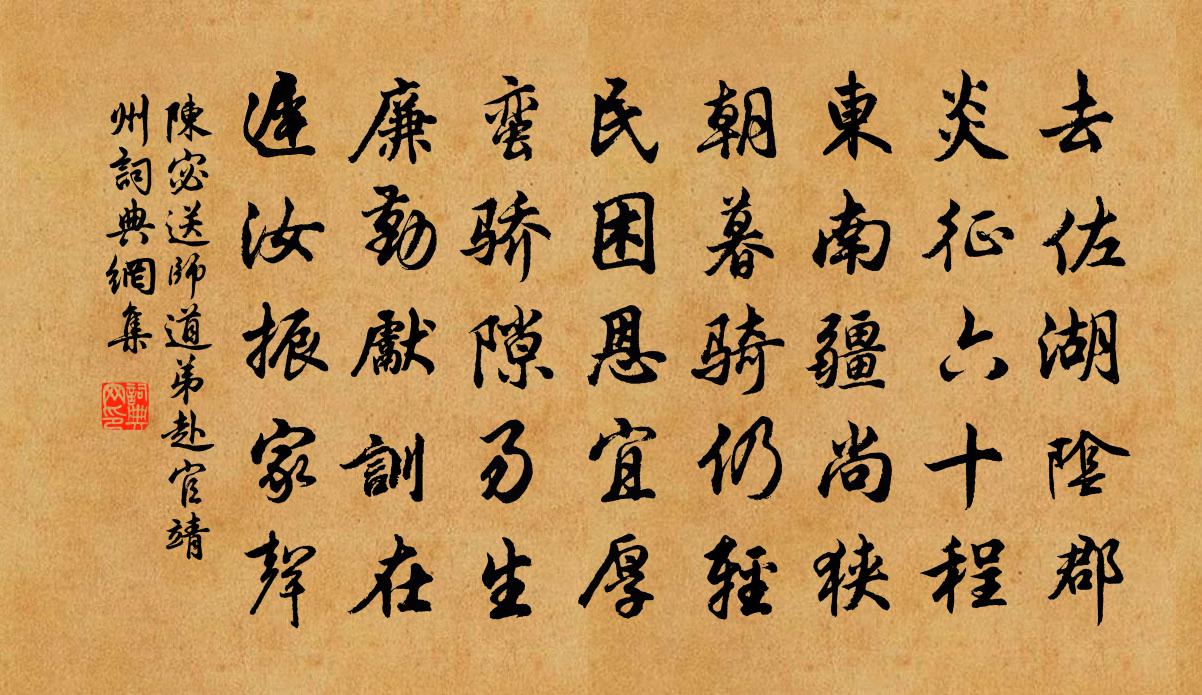 去佐湖陰郡
炎征六十程
東南疆尚狹
朝暮骑仍輕
民困恩宜厚
蛮骄隙易生
廉勤獻訓在
遲汝振家聲
陳宓送師道弟赴官靖
州詞典網集
詞典
网印